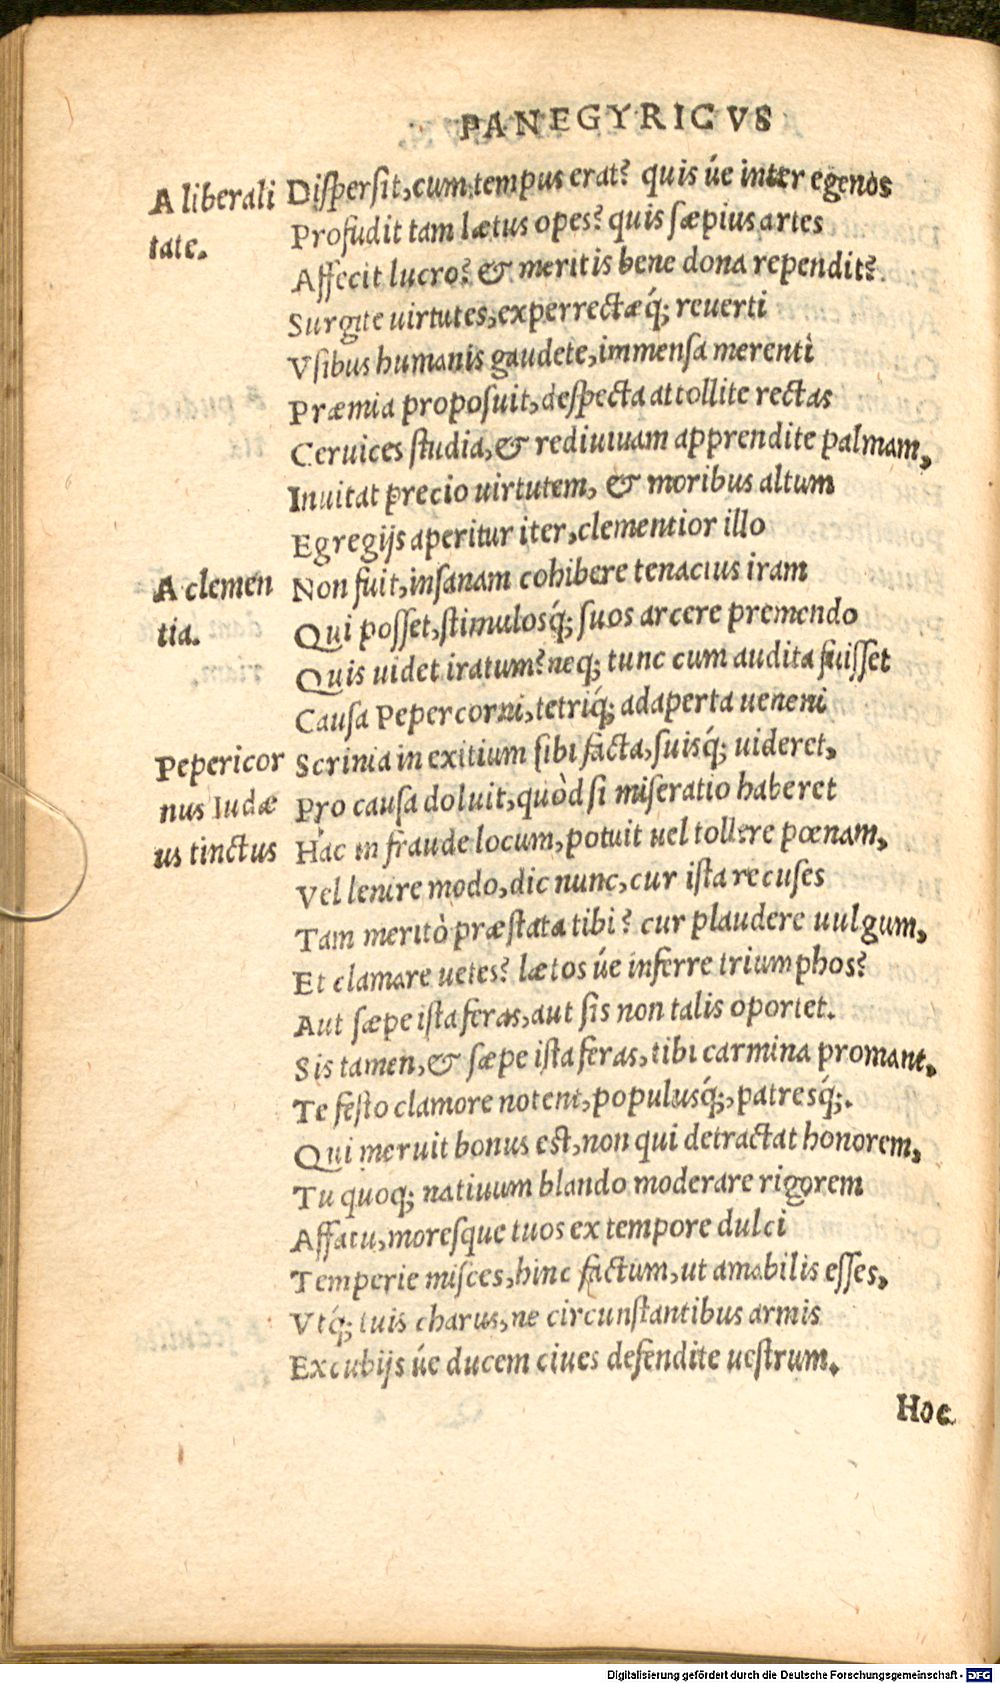 PANEGYRICVS
A liberali
tate.
Dispersit, cum tempus erat? quis úe inter egenos
Profudit tam lætus opes? quis sæpius artes
Affecit lucro? & meritis bene dona rependit?
Surgite uirtutes, experrectæq́; reuerti
Vsibus humanis gaudete, immensa merenti
Præmia proposuit, despecta attollite rectas
Ceruices studia, & rediuiuam apprendite palmam,
Inuitat precio uirtutem, & moribus altum
Egregijs aperitur iter, clementior illo
A clemen
tia.
Non fuit, insanam cohibere tenacius iram
Qui posset, stimulosq́; suos arcere premendo
Quis uidet iratum? neq; tunc cum audita fuisset
Causa Pepercorni, tetriq́; adaperta ueneni
Pepericor
nus Iudæ
us tinctus
Scrinia in exitium sibi facta, suisq́; uideret,
Pro causa doluit, quòd si miseratio haberet
Hac in fraude locum, potuit uel tollere pœnam,
Vel lenire modo, dic nunc, cur ista recuses
Tam meritò præstata tibi? cur plaudere uulgum,
Et clamare uetes? lætos úe inferre triumphos?
Aut sæpe ista feras, aut sis non talis oportet.
Sis tamen, & sæpe ista feras, tibi carmina promant,
Te festo clamore notent, populusq́;, patresq́;.
Qui meruit bonus est, non qui detractat honorem,
Tu quoq; natiuum blando moderare rigorem
Affatu, moresque tuos ex tempore dulci
Temperie misces, hinc factum, ut amabilis esses,
Vtq́; tuis charus, ne circunstantibus armis
Excubijs úe ducem ciues defendite uestrum.
Hoc
Digitalisierung gefördert durch die Deutsche Forschungsgemeinschaft - DFG